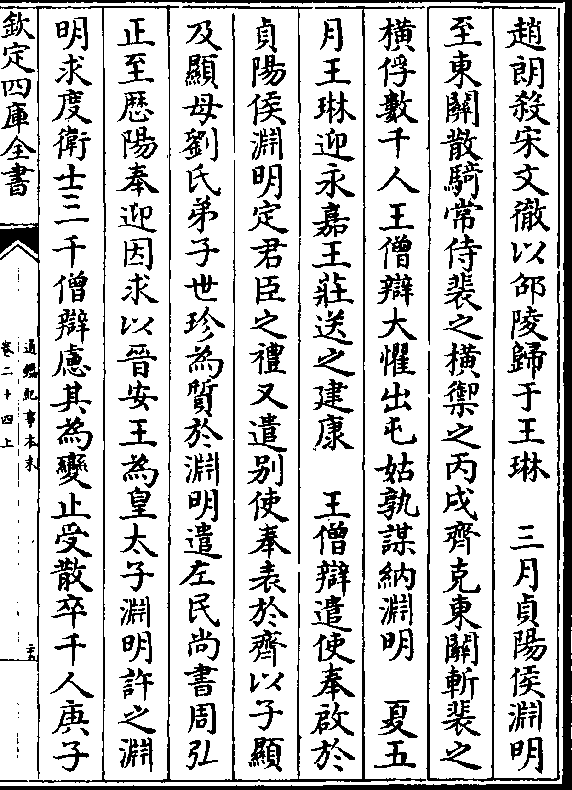 趙朗殺宋文徹以邵陵歸于王琳　三月貞陽侯淵明
至東關散騎常侍裴之橫禦之丙戌齊克東關斬裴之
橫俘數千人王僧辯大懼出屯姑孰謀納淵明　夏五
月王琳迎永嘉王莊送之建康　王僧辯遣使奉啟於
貞陽侯淵明定君臣之禮又遣别使奉表於齊以子顯
及顯母劉氏弟子世珍為質於淵明遣左民尚書周弘
正至歷陽奉迎因求以晉安王為皇太子淵明許之淵
明求度衛士三千僧辯慮其為變止受散卒千人庚子
欽定四庫全書
通鑑紀事本末
卷二十四上